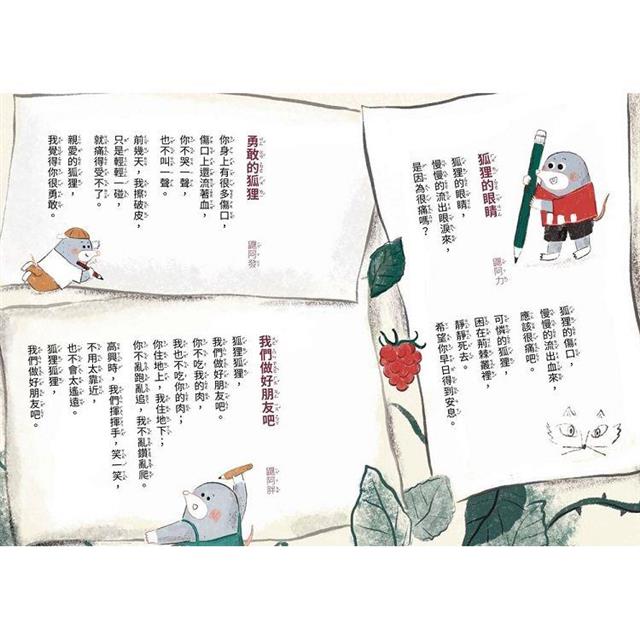 狐狸的眼睛
鼴阿力
狐狸的眼睛，
慢慢的流出眼淚來，
是因為很痛嗎？
狐狸的傷口，
慢慢的流出血來，
應該很痛吧。
可憐的狐狸
困在荊棘叢裡，
靜靜死去。
希望你早日得到安息。
勇敢的狐狸
鼴阿發
你身上有很多傷口，
傷口上還流著血，
你不哭一聲，
也不叫一聲。
前幾天，我擦破皮，
只是輕輕一碰，
就痛得受不了。
親愛的狐狸，
我覺得你很勇敢。
我們做好朋友吧
鼴阿胖
狐狸狐狸，
我們做好朋友吧。
你不吃我的肉，
我也不吃你的肉；
你住地上，我住地下；
你不亂跑亂追，我不亂鑽亂爬。
高興時，我們揮揮手，笑一笑，
不用太靠近，
也不會太遙遠。
狐狸狐狸，
我們做好朋友吧。